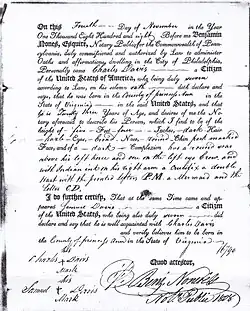 On this Fourth Day of November in the Year
One Thousand Eight Hundred and eight, Before me BENJAMIN
NONES, ESQUIRE, Notary Public for the Commonwealth of Penn-
sylvania, duly commissioned and authorized by Law to administer
Oaths and affirmations, dwelling in the City of Philadelphia,
Personally came Charles Davis Citizen
of the United States of America, who being duly sworn
according to Law, on his solemn oath doth declare and
say, that he was born in the County of princess Ann in the
State of Virginia in the said United States, and that
he is Twenty three Years of Age, and desires of me the No-
tary aforesaid to describe his Person, which I find to be of the
height of five Feet nine Inches, dark Hair
dark Eyes, Nose, Chin, pock marked
Face, and of a dark Complexion has a
above his left knee and one on the left eye brow, and
with Indian ink on his right arm a Crucifix a double
Heart with the printed letters P.M. a Mermaid and the
letter C.D.
I do further certify, That at the same Time came and ap-
peared Samuel Davis Citizen
of the United States, who being also duly sworn did
declare and say that he is well acquainted with Charles Davis
and verily believes him to be born in
the County of princess Ann in the State of Virginia
his
Charles + Davis
Mark
his
Samuel + Davis
Mark
Quod attestor,
Benj. Nones
Not. Public 1808